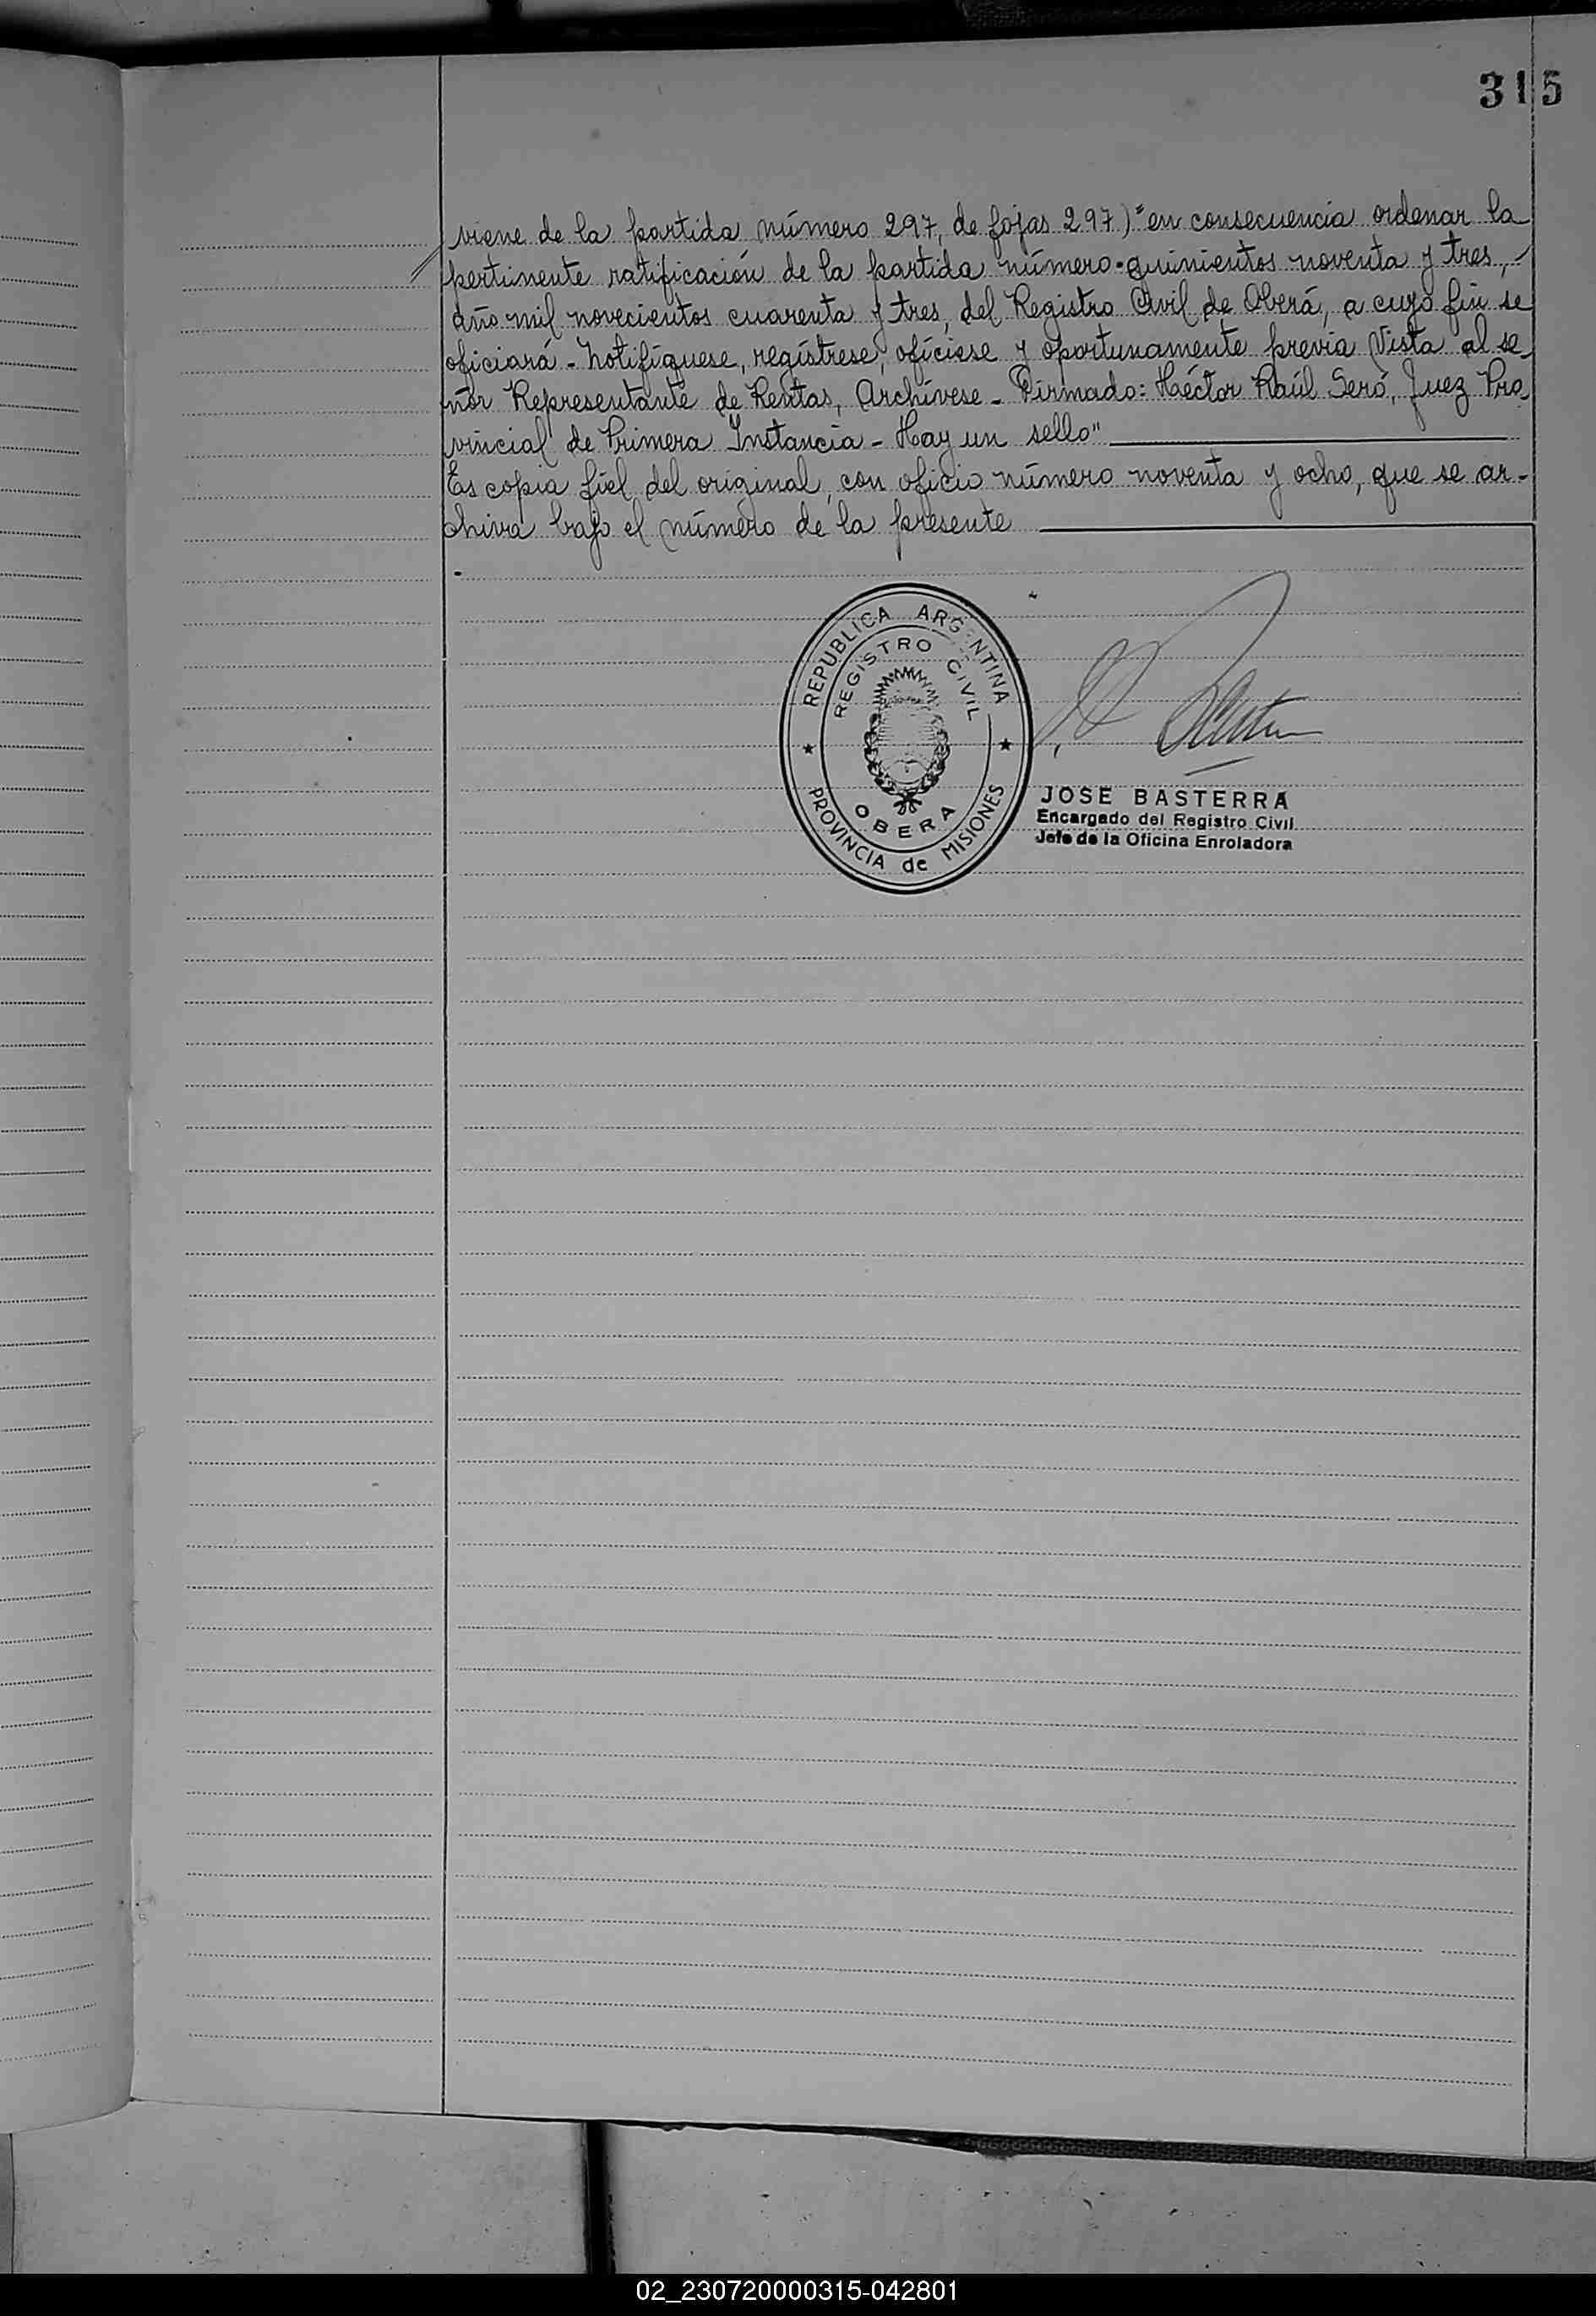 315
viene de la partida número 297, de fojas 297) "en consecuencia ordenar la
pertinente ratificación de la partida número quinientos noventa y tres,
año mil novecientos cuarenta y tres, del Registro Civil de Oberá, a cuyo fin se
oficiará - Notifíquese, regístrese, ofíciese y oportunamente previa Vista al se-
ñor Representante de Rentas, Archívese - Firmado: Héctor Raúl Seró, Juez Pro
vincial de Primera Instancia - Hay un sello"
Es copia fiel del original, con oficio número noventa y ocho, que se ar-
chiva bajo el número de la presente
REPUBLICA ARGENTINA
REGISTRO CIVIL
OBERA
PROVINCIA de MISIONES
JOSE BASTERRA
Encargado del Registro Civil
Jefe de la Oficina Enroladora
02_230720000315-042801